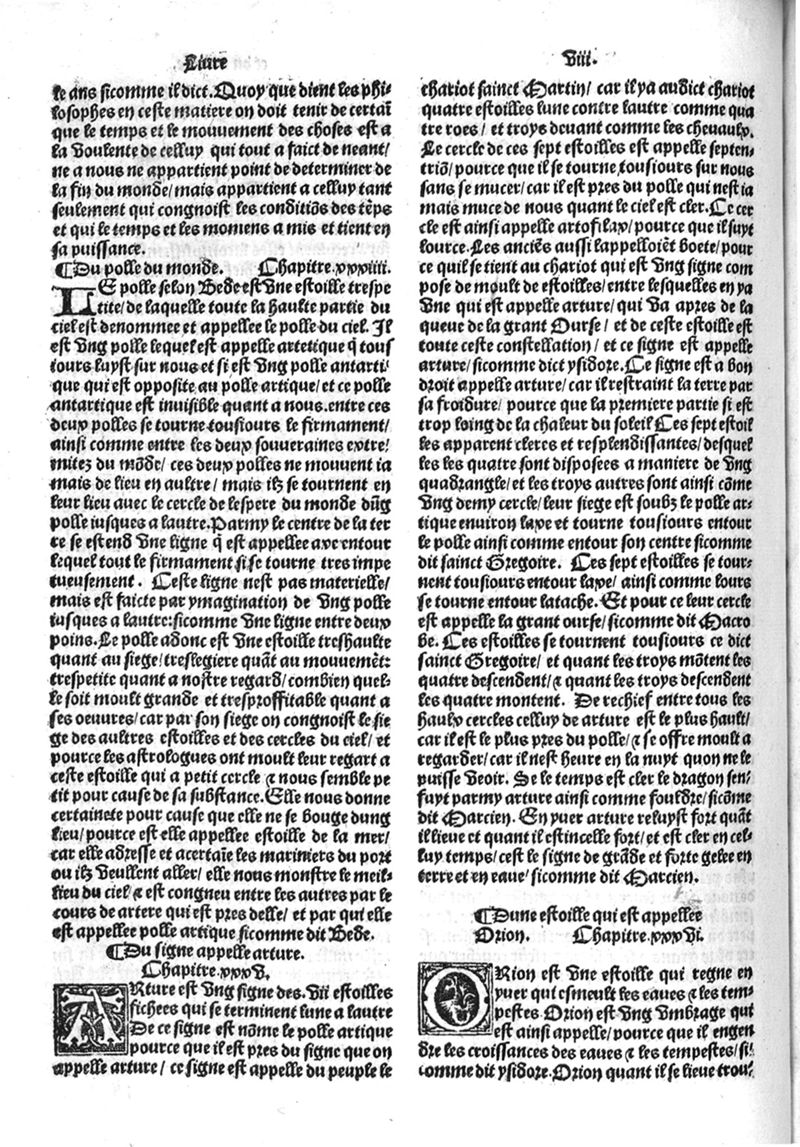 Liure
le ans sicomme il dict. Quoy que dient les phi-
losophes en ceste matiere on doit tenir de certaī
que le temps et le mouuement des choses est a
la Voulente de celluy qui tout a faict de neant/
ne a nous ne appartient point de determiner de
la fin du monde/ mais appartient a celluy tant
seulement qui congnoist les conditiōs des tēps
et qui le temps et les momens a mis et tient en
sa puissance.
¶Du polle du monde. Chapitre.xxxiiii.
LE polle selon Bede est Vne estoille trespe
tite/ de laquelle toute la haulte partie du
ciel est denommee et appellee le polle du ciel. Il
est Vng polle lequel est appelle artetique q̄ tous
iours luyst sur nous et si est Vng polle antarti-
que qui est opposite au polle artique/ et ce polle
antartique est inuisible quant a nous. entre ces
deux polles se tourne tousiours le firmament/
ainsi comme entre les deux souueraines extre/
mitez du mōde/ ces deux polles ne mouuent ia
mais de lieu en aultre/ mais ilz se tournent en
leur lieu auec le cercle de lespere du monde dūg
polle iusques a lautre. Parmy le centre de la ter
re se estend Vne ligne q̄ est appellee axe entour
lequel tout le firmament si se tourne tres impe
tueusement. Ceste ligne nest pas materielle/
mais est faicte par ymagination de Vng polle
iusques a lautre: sicomme Vne ligne entre deux
poins. Le polle adonc est Vne estoille treshaulte
quant au siege/ treslegiere quāt au mouuemēt:
trespetite quant a nostre regard/ combien quel-
le soit moult grande et tresproffitable quant a
ses oeuures/ car par son siege on congnoist le sie
ge des aultres estoilles et des cercles du ciel/ et
pource les astrologues ont moult leur regart a
ceste estoille qui a petit cercle & nous semble pe
tit pour cause de sa substance. Elle nous donne
certainete pour cause que elle ne se bouge dung
lieu/ pource est elle appellee estoille de la mer/
car elle adresse et acertaīe les mariniers du port
ou ilz Veullent aller/ elle nous monstre le meil-
lieu du ciel & est congneu entre les autres par le
cours de artere qui est pres delle/ et par qui elle
est appellee polle artique sicomme dit Bede.
¶Du signe appelle arture.
Chapitre.xxxV.
ARture est Vng signe des. Vii estoilles
fichees qui se terminent lune a lautre
De ce signe est nōme le polle artique
pource que il est pres du signe que on
appelle arture/ ce signe est appelle du peuple le
Viii.
chariot sainct Martin/ car il ya audict chariot
quatre estoilles lune contre lautre comme qua
tre roes/ et troys deuant comme les cheuaulx.
Le cercle de ces sept estoilles est appelle septen-
triō/ pource que il se tourne tousiours sur nous
sans se mucer/ car il est pres du polle qui nest ia
mais muce de nous quant le ciel est cler. Ce cer
cle est ainsi appelle artofilax/ pource que il suyt
lource. Les anciēs aussi lappelloiēt boete/ pour
ce quil se tient au chariot qui est Vng signe com
pose de moult de estoilles/ entre lesquelles en ya
Vne qui est appelle arture/ qui Va apres de la
queue de la grant Ourse/ et de ceste estoille est
toute ceste constellation/ et ce signe est appelle
arture/ sicomme dict ysidore. Ce signe est a bon
droit appelle arture/ car il restraint la terre par
sa froidure/ pource que la premiere partie si est
trop loing de la chaleur du soleil Ces sept estoil
les apparent cleres et resplendissantes/ desquel
les les quatre sont disposees a maniere de Vng
quadrangle/ et les troys autres sont ainsi cōme
Vng demy cercle/ leur siege est soubz le polle ar-
tique enuiron laxe et tourne tousiours entour
le polle ainsi comme entour son centre sicomme
dit sainct Gregoire. Ces sept estoilles se tour-
nent tousiours entour laxe/ ainsi comme lours
se tourne entour latache. Et pour ce leur cercle
est appelle la grant ourse/ sicomme dit Macro
be. Ces estoilles se tournent tousiours ce dict
sainct Gregoire/ et quant les troys mōtent les
quatre descendent/ & quant les troys descendent
les quatre montent. De rechief entre tous les
haulx cercles celluy de arture est le plus hault/
car il est le plus pres du polle/ & se offre moult a
regarder/ car il nest heure en la nuyt quon ne le
puisse Veoir. Se le temps est cler le dragon sen-
fuyt parmy arture ainsi comme fouldre/ sicōme
dit Marcien. En yuer arture reluyst fort quāt
il lieue et quant il estincelle fort/ et est cler en cel-
luy temps/ cest le signe de grāde et forte gelee en
terre et en eaue/ sicomme dit Marcien.
¶Dune estoille qui est appellee
Orion. Chapitre.xxxVi.
ORion est Vne estoille qui regne en
yuer qui esmeult les eaues & les tem-
pestes Orion est Vng Vmbrage qui
est ainsi appelle/ pource que il engen
dre les croissances des eaues & les tempestes/ si-
comme dit ysidore. Orion quant il se lieue trou-